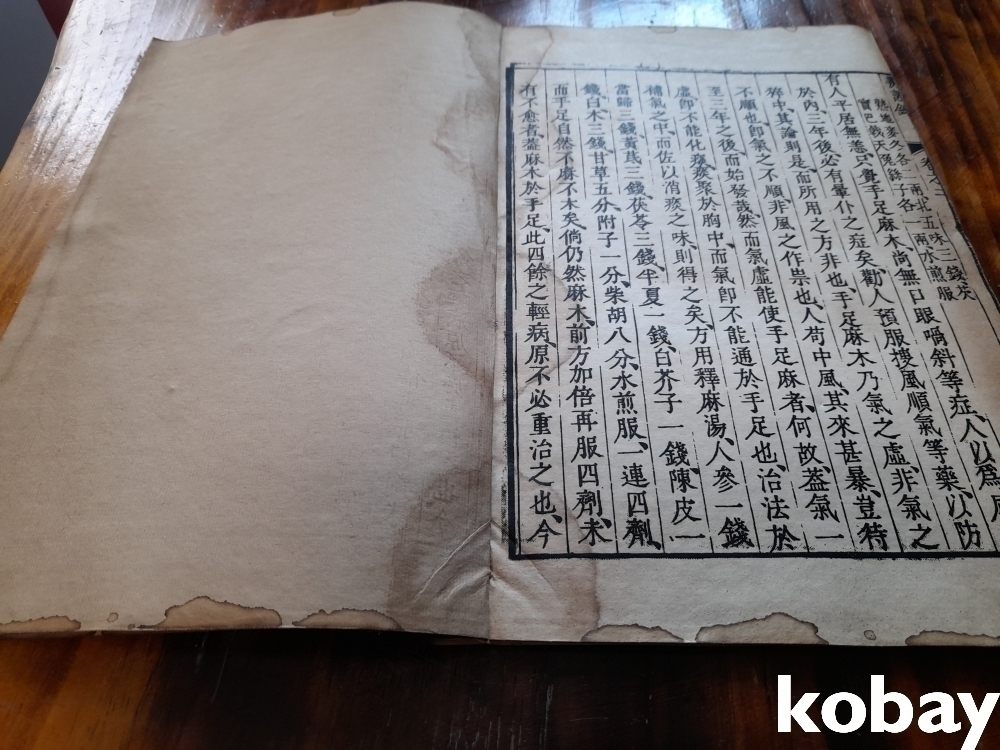 證錄 卷之二
熟地麥冬各一兩北五味三錢茯
實巴戟天菟絲子各一兩水煎服
有人平居無恙只覺手足麻木尚無口眼喎斜等症、人以爲
於內、三年後必有暈仆之症矣、勸人預服搜風順氣等藥、以防
猝中、其論則是、而所用之方非也、手足麻木乃氣之虛、非氣之
不順也、卽氣之不順、非風之作祟也、人苟中風、其來甚暴、豈特
至三年之後而始發哉、然而氣虛能使手足麻者、何故、葢氣一
虛、卽不能化痰、痰聚於胸中、而氣卽不能通於手足也、治法於
補氣之中、而佐以消痰之味、則得之矣、方用釋麻湯、人參一錢
當歸三錢、黃芪三錢、茯苓三錢、半夏一錢、白芥子一錢、陳皮一
錢、白朮三錢、甘草五分、附子一分、柴胡八分、水煎服、一連四劑、
而手足自然不麻不木矣、倘仍然麻木、前方加倍再服四劑、未
有不愈者、葢麻木於手足、此四餘之輕病、原不必重治之也、今
kobay